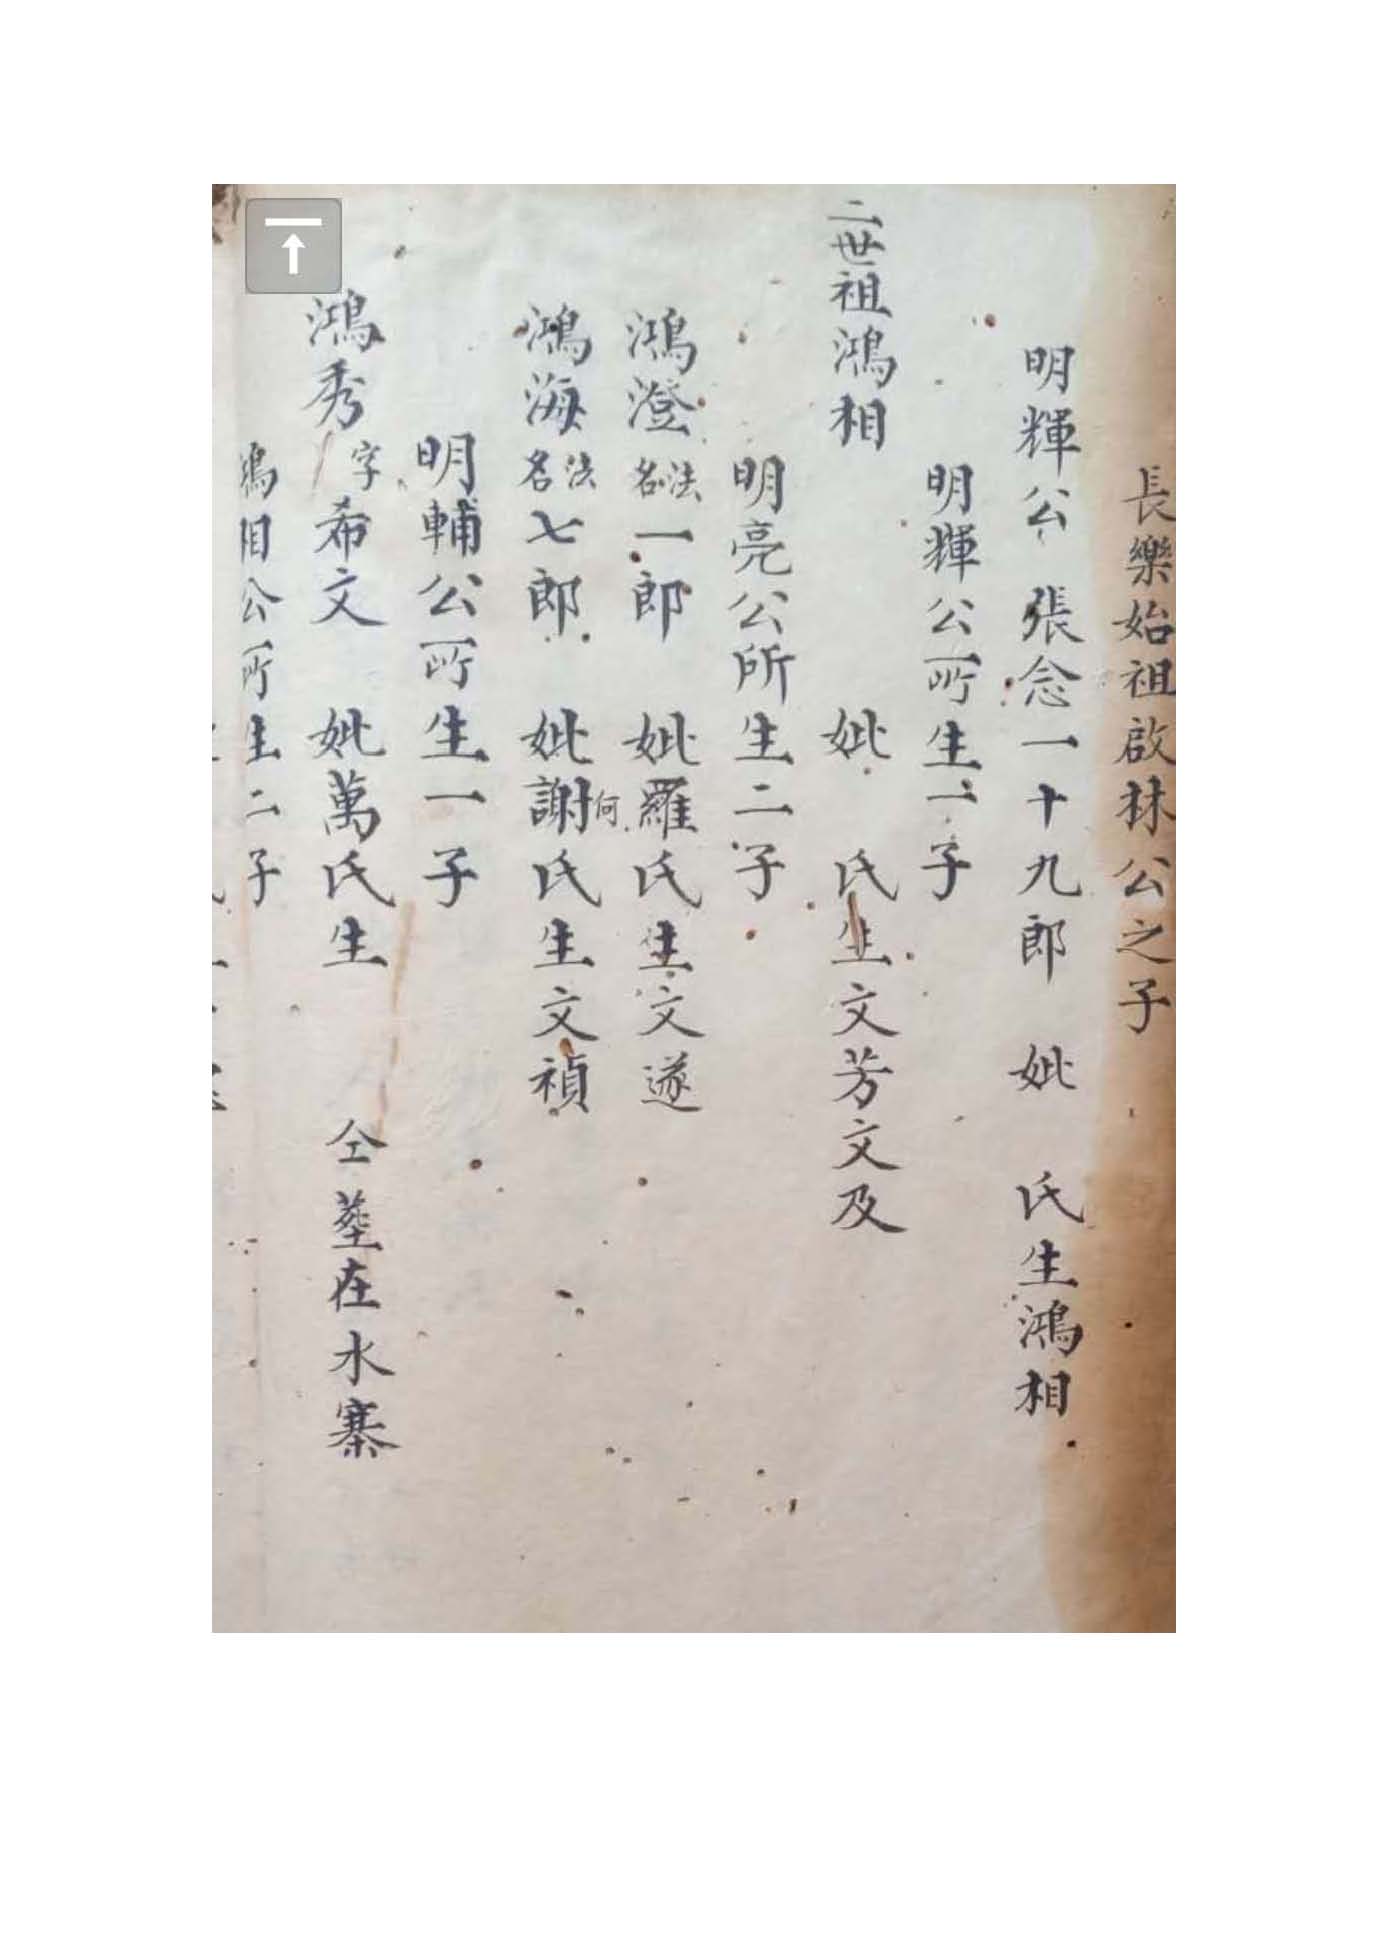 長樂始祖啟林公之子
明輝公 張念一十九郎 妣 氏生鴻相
明輝公所生一子
二世祖鴻相 妣 氏生文芳文及
明亮公所生二子
鴻澄法名一郎 妣羅氏生文遂
何
鴻海法名七郎 妣謝氏生文禎
明輔公所生一子
鴻秀字希文 妣萬氏生 仝塟在水寨
鴻相公所生二子